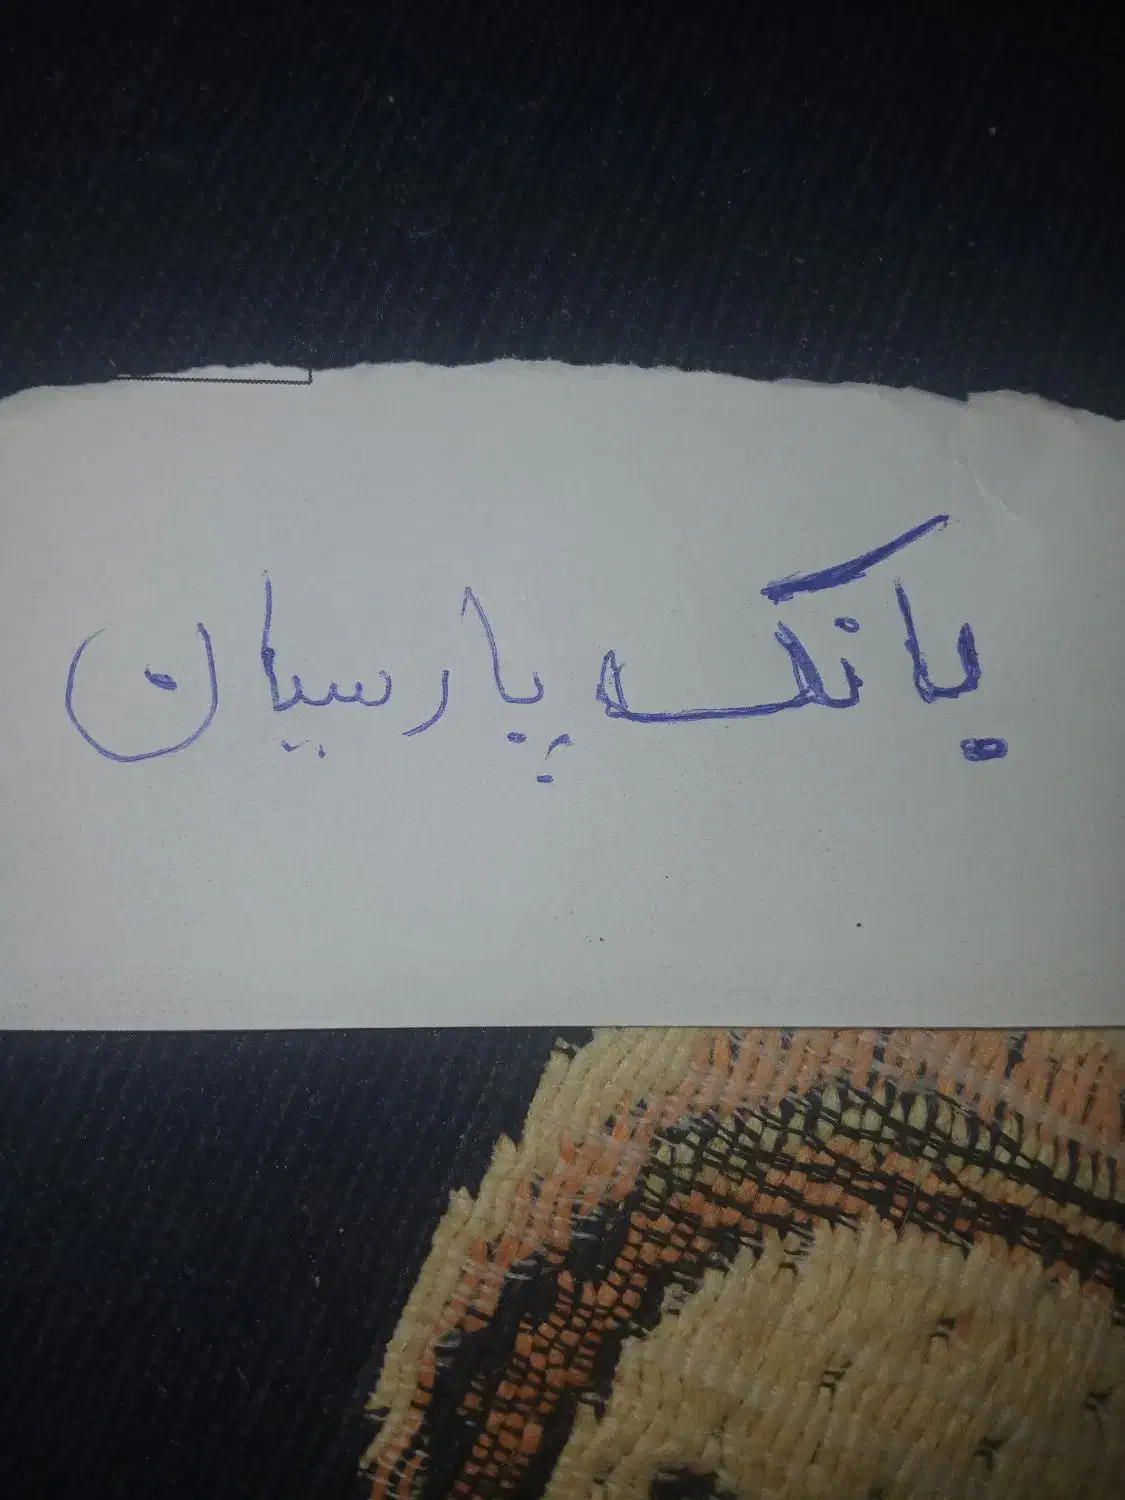 بانک پارسیان